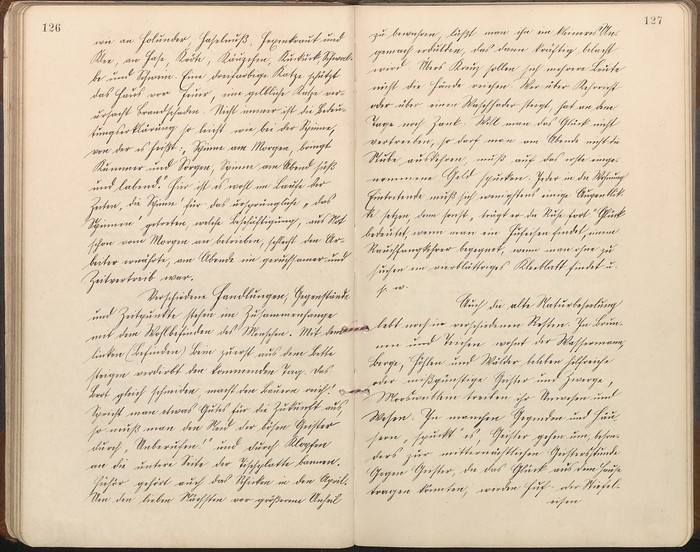 126
wie an Holunder, Haselnuß, Hexenkraut und
Klee, an Hase, Kröte, Käuzchen, Kuckuck, Schwal-
be und Schwein. Eine dreifarbige Katze schützt
das Haus vor Feuer, eine gelbliche Katze ver-
ursacht Brandschaden. Nicht immer ist die Bedeu-
tungserklärung so leicht wie bei der Spinne,
von der es heißt: „Spinne am Morgen, bringt
Kummer und Sorgen, Spinne am Abend süß
und labend." Hier ist es wohl im Laufe der
Zeiten, die Spinne für das ursprüngliche „das
Spinnen" getreten, welche Beschäftigung, aus Not
schon vom Morgen an betrieben, schlecht den Ar-
beiter ernährte, am Abende ein geruhsamer und
Zeitvertreib war.
Verschiedene Handlungen, Gegenstände
und Zeitpunkte stehen im Zusammenhange
mit dem Wohlbefinden des Menschen. Mit dem
linken Bein zuerst aus dem Bette
steigen verdirbt den kommenden Tag. Das
Brot gleich schneiden, macht den Bauern reich.
Spricht man etwas Gutes für die Zukunft aus,
so muß man den Neid der bösen Geister
durch „Unberufen!" und durch Klopfen
an die untere Seite der Tischplatte bannen.
Hieher gehört auch das Schicken in den April.
Um den lieben Nächsten vor größerem Unheil
127
zu bewahren, läßt man ihn ein kleineres Un-
gemach erdulden, das dann kräftig belacht
wird. Übers Kreuz sollen sich mehrere Leute
nicht die Hände reichen. Wer über Kehricht
oder über einen steigt, hat an dem
Tage noch Zank. Will man das Glück nicht
vertreiben, so darf man am Abende nicht die
Stube auskehren, muß auf das erste einge-
nommene Geld spucken. Jeder in die Wohnung
Eintretende muß sich wenigstens einige Augenblik-
ke setzen, denn sonst „trägt er die Ruhe fort". Glück
bedeutet, wenn man ein Hufeisen findet, einem
Rauchfangkehrer begegnet, wenn man ohne zu
suchen ein vierblättriges Kleeblatt findet u.
s. w.
Auch die alte Naturbeseelung
lebt noch in verschiedenen Resten. In Brun-
nen und Teichen wohnt der Wassermann,
Berge, Höhlen und Wälder beleben hilfreiche
oder mißgünstige Geister und Zwerge,
Moosweiblein treiben ihr Unwesen und
Wesen. In manchen Gegenden und Häu-
sern „spuckt" es, Geister gehen um, beson-
ders zur mitternächtlichen Geisterstunde.
Gegen Geister, die das Glück aus dem Hause
tragen könnten, werden Huf- oder Stiefel-
eisen